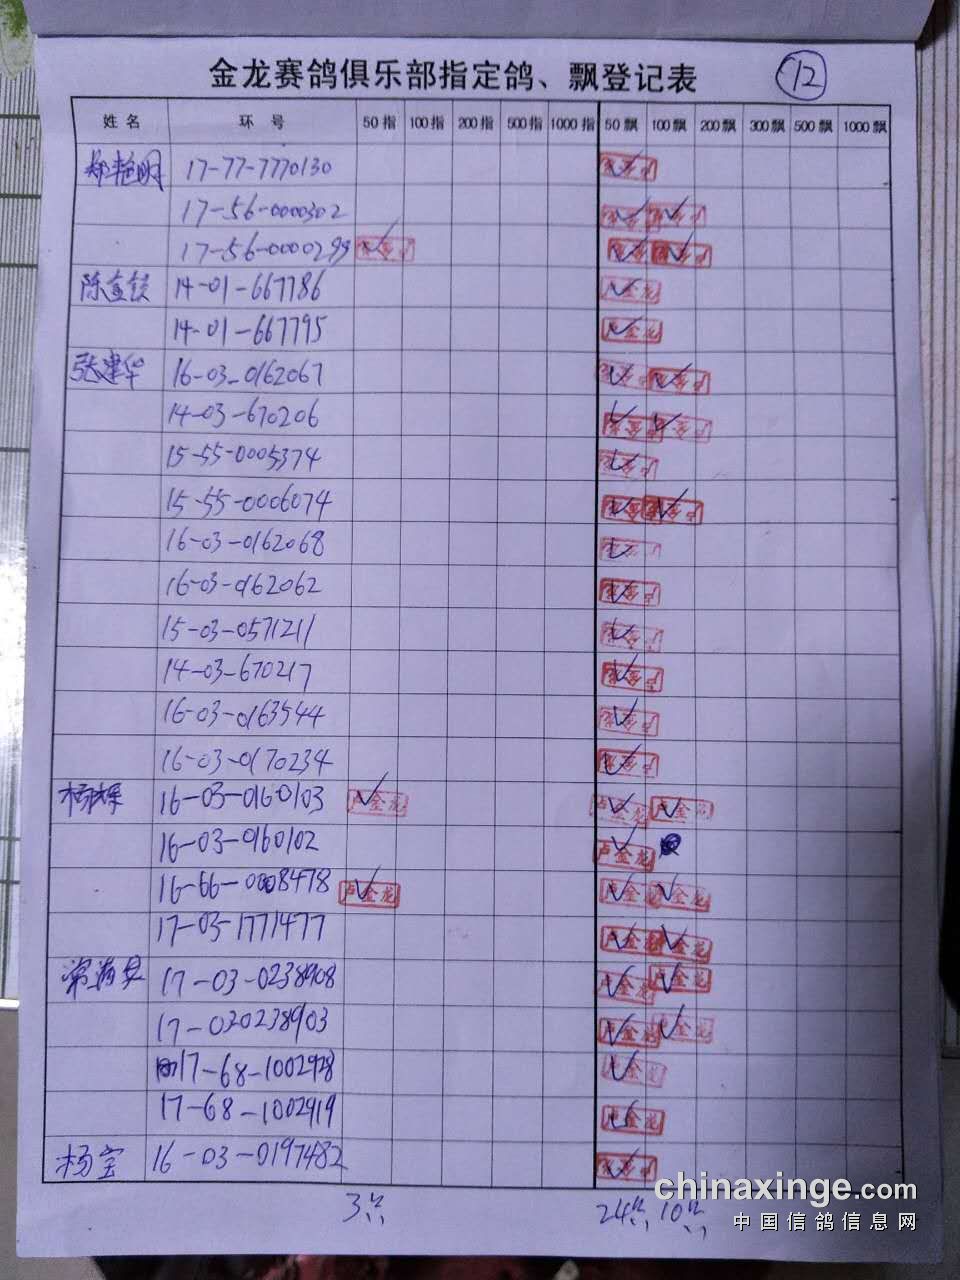 金龙赛鸽俱乐部指定鸽、飘登记表 12
姓名 环号 50指 100指 200指 500指 1000指 50飘 100飘 200飘 300飘 500飘 1000飘
郑艳明 17-77-7770130
17-56-0000302
17-56-0000299
14-01-667786
14-01-667795
张建华 16-03-0162067
14-03-670206
15-55-0005374
15-55-0006074
16-03-0162068
16-03-0162062
15-03-0571211
14-03-670217
16-03-0163544
16-03-0170234
杨辉 16-03-0160103 卢金龙 卢金龙
16-03-0160102 卢金龙
16-66-0008478 卢金龙
17-03-1771477
17-03-0238908
17-03-0238903
17-68-1002928
17-68-1002919
杨宝 16-03-0197482
3 24 10
chinaxinge.com
中国信鸽信息网